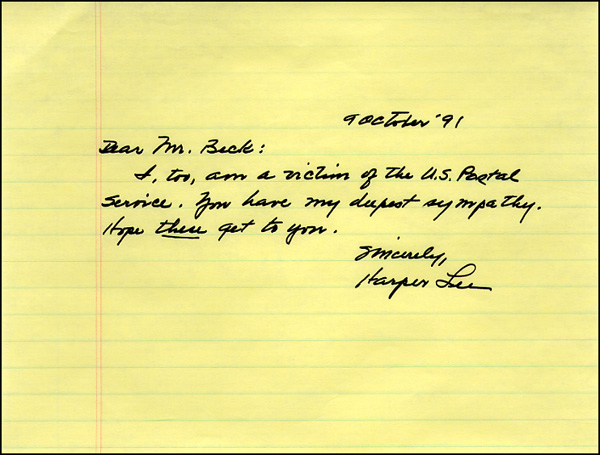 9 October '91
Dear Mr. Beck:
I, too, am a victim of the U.S. Postal
Service. You have my deepest sympathy.
Hope these get to you.
Sincerely,
Harper Lee